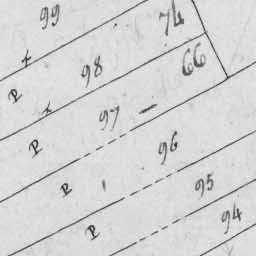 99
74
P
98
66
P
97
96
P
95
P
94